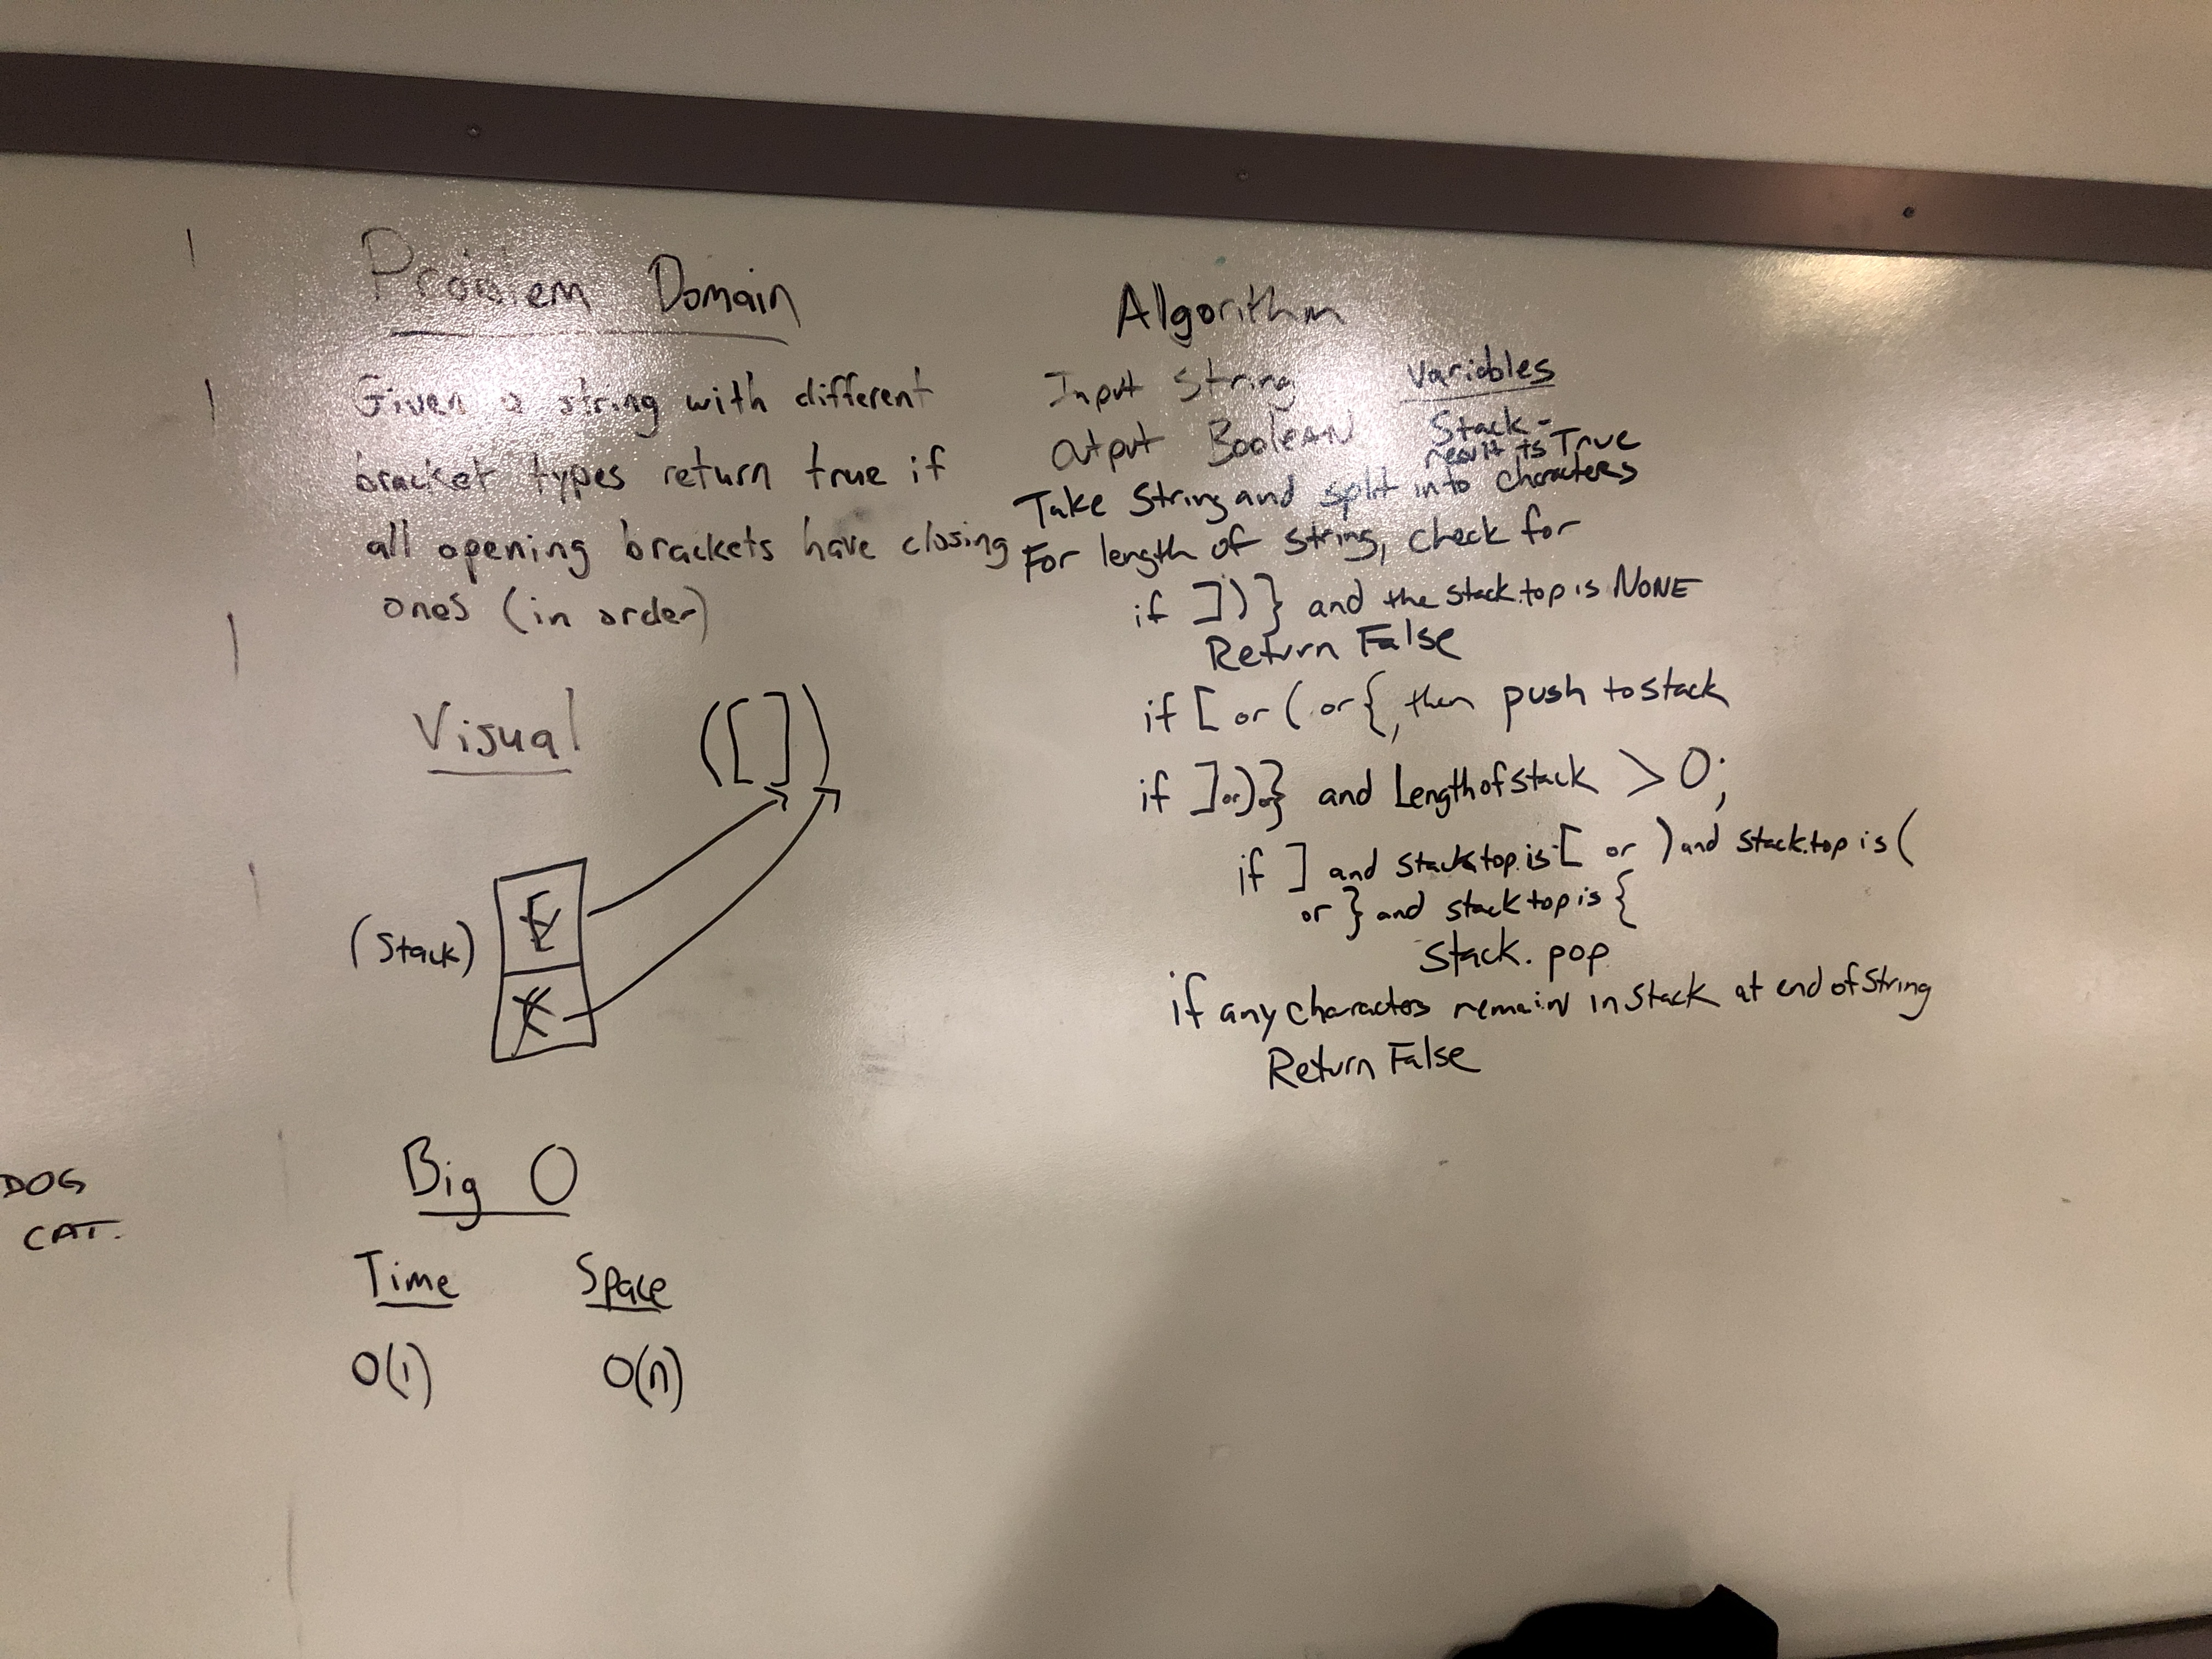 Problem Domain
Given a string with different
bracket types return true if
all opening brackets have closing
ones (in order)
Visual
([])
(Stack)
[
(
Big O
Time Space
O(1) O(n)
DOG
CAT.
Algorithm
Input String
Output Boolean
Variables
Stack -
result is True
Take String and split into characters
For length of string, check for
if ] ) } and the stack.top is NONE
Return False
if [ or ( or {, then push to stack
if ] or ) or } and Length of stack > 0;
if ] and stack.top is [ or ) and stack.top is (
or } and stack top is {
Stack. pop
if any characters remain in Stack at end of String
Return False